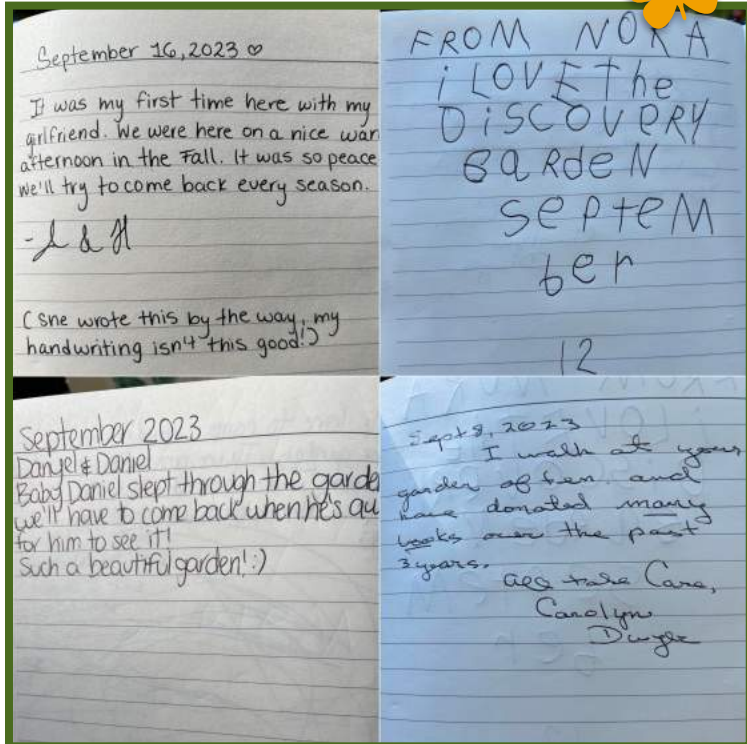 September 16, 2023 ♡
It was my first time here with my
girlfriend. We were here on a nice war
afternoon in the Fall. It was so peace
we'll try to come back every season.
- & H
(She wrote this by the way, my
handwriting isn't this good!)
FROM NORA
i LOVE the
DiSCOVeRY
GaRdeN
SePteM
ber
12
September 2023
Danyel & Daniel
Baby Daniel slept through the garde
we'll have to come back when he's
for him to see it!
Such a beautiful garden! :)
Sept 8, 2023
I walk at your
garden often and
have donated many
books over the past
3 years.
All take Care,
Carolyn